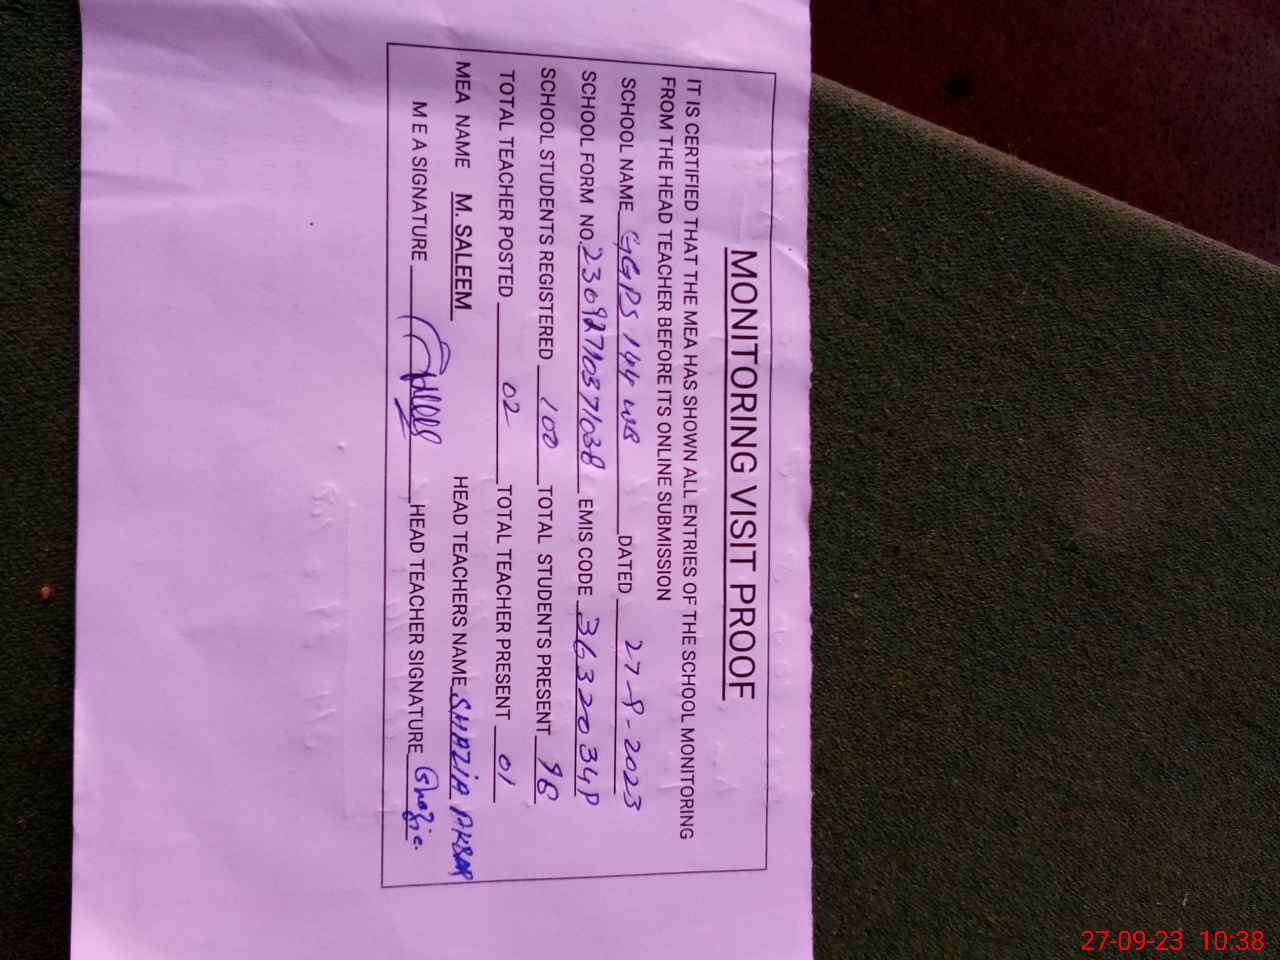 MONITORING VISIT PROOF
IT IS CERTIFIED THAT THE MEA HAS SHOWN ALL ENTRIES OF THE SCHOOL MONITORING
FROM THE HEAD TEACHER BEFORE ITS ONLINE SUBMISSION
SCHOOL NAME GGPS 144 WB DATED 27-9-2023
SCHOOL FORM NO. 23092710371038 EMIS CODE
SCHOOL STUDENTS REGISTERED 100 TOTAL STUDENTS PRESENT
TOTAL TEACHER POSTED 02 TOTAL TEACHER PRESENT 01
MEA NAME M. SALEEM HEAD TEACHERS NAME SHAZIA AKBAR
MEA SIGNATURE HEAD TEACHER SIGNATURE
27-09-23 10:38